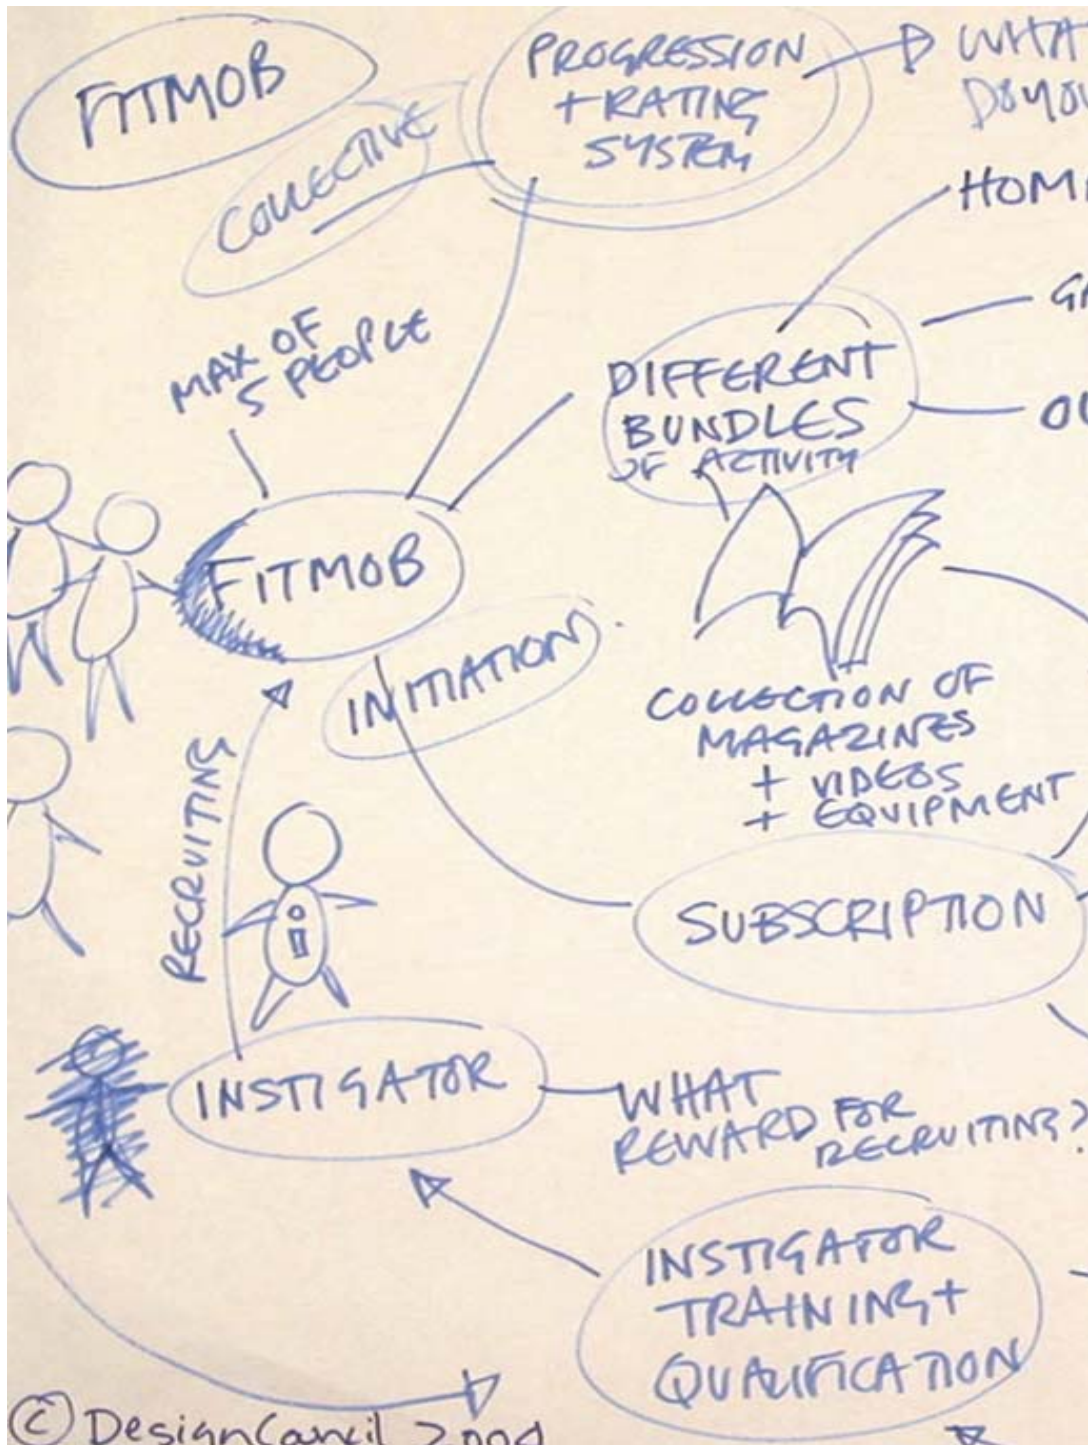 FITMOB
COLLECTIVE
PROGRESSION
+ RATING
SYSTEM
WHAT
DO YOU
HOM
MAX OF
5 PEOPLE
DIFFERENT
BUNDLES
OF ACTIVITY
FITMOB
INITIATION
COLLECTION OF
MAGAZINES
+ VIDEOS
+ EQUIPMENT
RECRUITING
SUBSCRIPTION
INSTIGATOR
WHAT
REWARD FOR
RECRUITING?
INSTIGATOR
TRAINING +
QUALIFICATION
© Design Council 2004